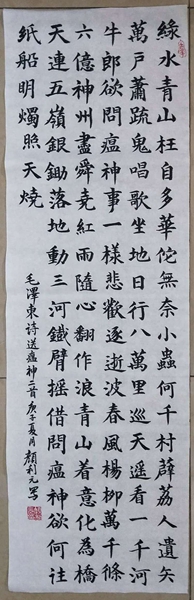 緑水青山枉自多華佗無奈小蟲何千村薜荔人遺矢
萬戶蕭疏鬼唱歌坐地日行八萬里巡天遥看一千河
牛郎欲問瘟神事一樣悲歡逐逝波春風楊柳萬千條
六億神州盡舜尭紅雨隨心翻作浪青山着意化為橋
天連五嶺銀鋤落地動三河鐵臂摇借問瘟神欲何往
紙船明燭照天燒
毛澤東詩送瘟神二首庚子夏月顏利元寫